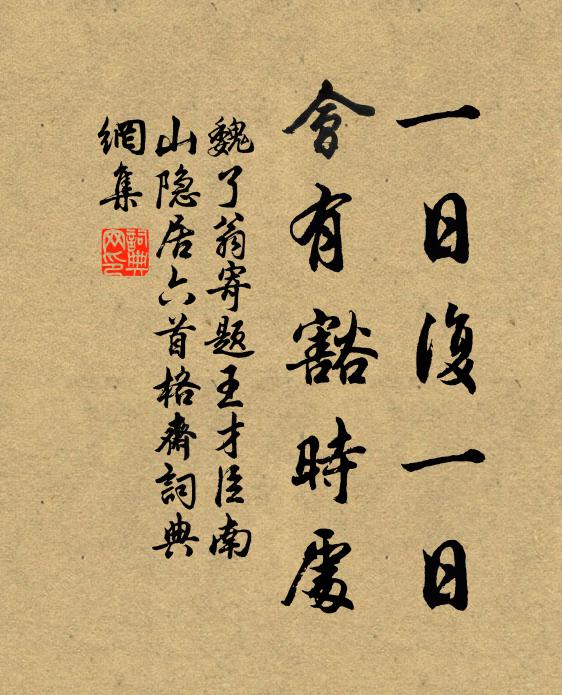 一日復一日
會有豁時處
魏了翁寄題王才臣南
山隐居六首格齋詞典
網集
詞典網印